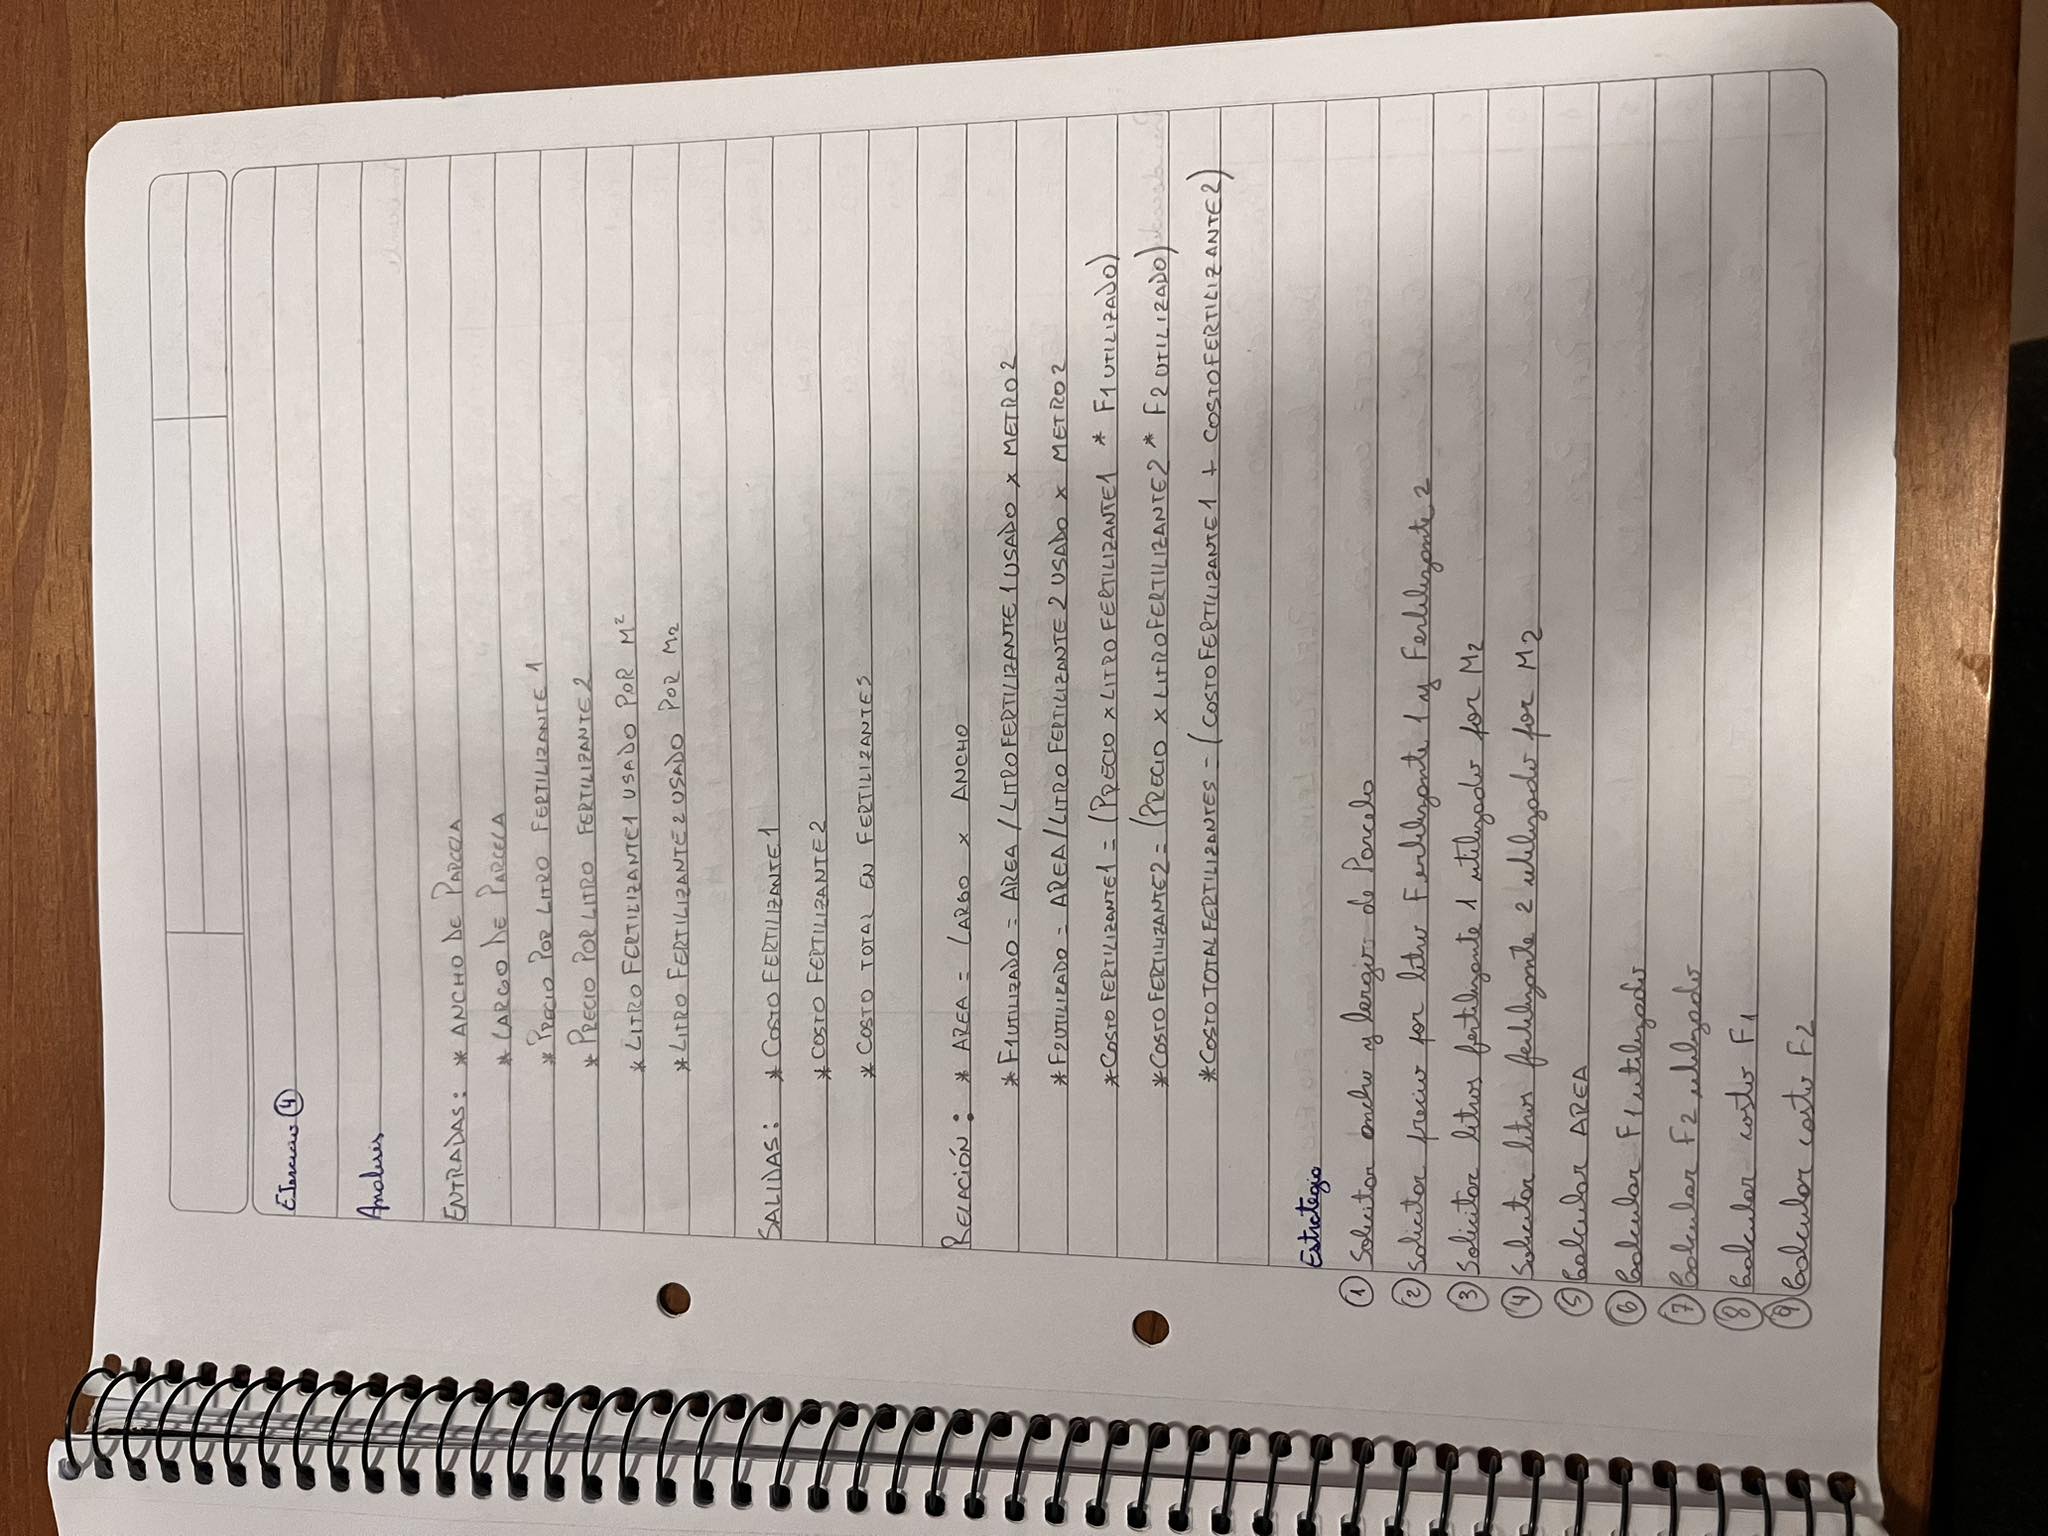 Ejercicio ④
Analisis
ENTRADAS: * ANCHO DE PARCELA
* LARGO DE PARCELA
* PRECIO POR LITRO FERTILIZANTE 1
* PRECIO POR LITRO FERTILIZANTE 2
* LITRO FERTILIZANTE 1 USADO POR M²
* LITRO FERTILIZANTE 2 USADO POR M2
SALIDAS: * COSTO FERTILIZANTE 1
* COSTO FERTILIZANTE 2
* COSTO TOTAL EN FERTILIZANTES
RELACIÓN: * AREA = LARGO x ANCHO
* F1UTILIZADO = AREA/LITROFERTILIZANTE 1 USADO x METRO2
* F2UTILIZADO = AREA/LITRO FERTILIZANTE 2 USADO x METRO2
* COSTO FERTILIZANTE1 = (PRECIO x LITRO FERTILIZANTE1 * F1 UTILIZADO)
* COSTO FERTILIZANTE2 = (PRECIO x LITRO FERTILIZANTE2 * F2 UTILIZADO)
* COSTO TOTAL FERTILIZANTES = (COSTO FERTILIZANTE 1 + COSTO FERTILIZANTE 2)
Estrategia
① Solicitar ancho y largo de Parcela
② Solicitar precio por litro Fertilizante 1 y Fertilizante 2
③ Solicitar litros fertilizante 1 utilizado por M2
④ Solicitar litros fertilizante 2 utilizado por M2
⑤ Calcular AREA
⑥ Calcular F1 utilizado
⑦ Calcular F2 utilizado
⑧ Calcular costo F1
⑨ Calcular costo F2